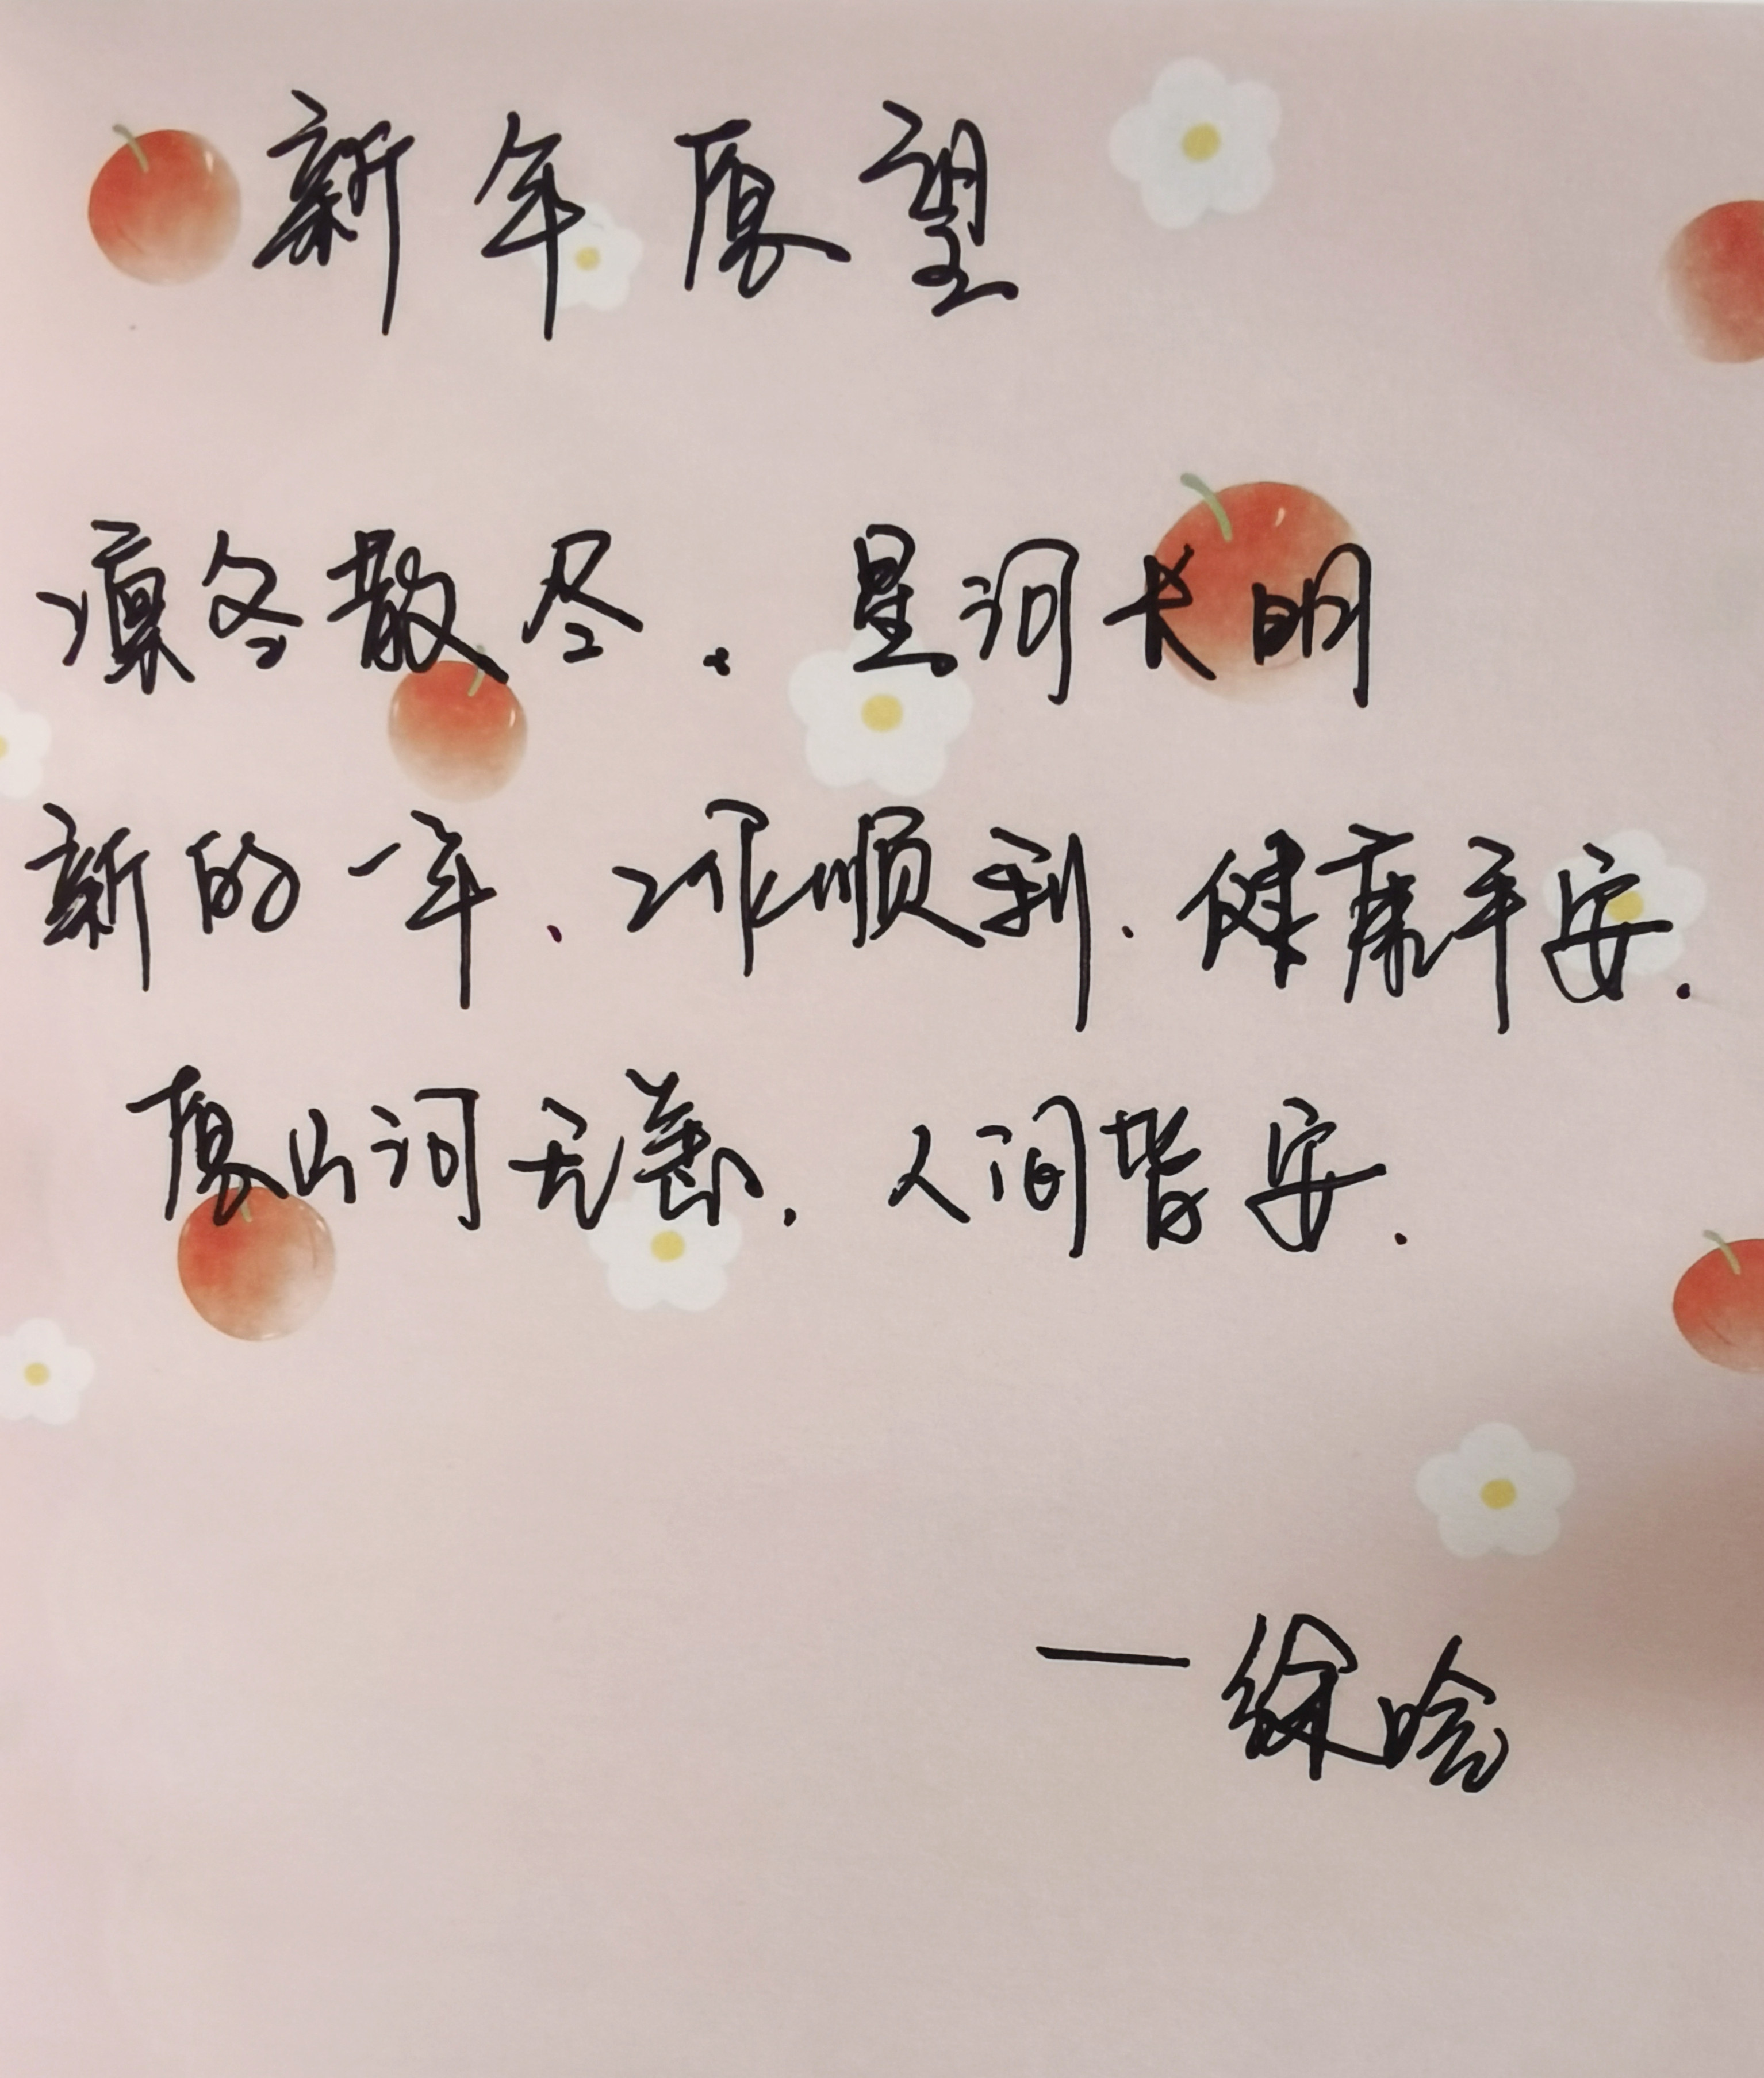 新年愿望
凛冬散尽.星河长明
新的一年.工作顺利.健康平安.
愿山河无恙.人间皆安.